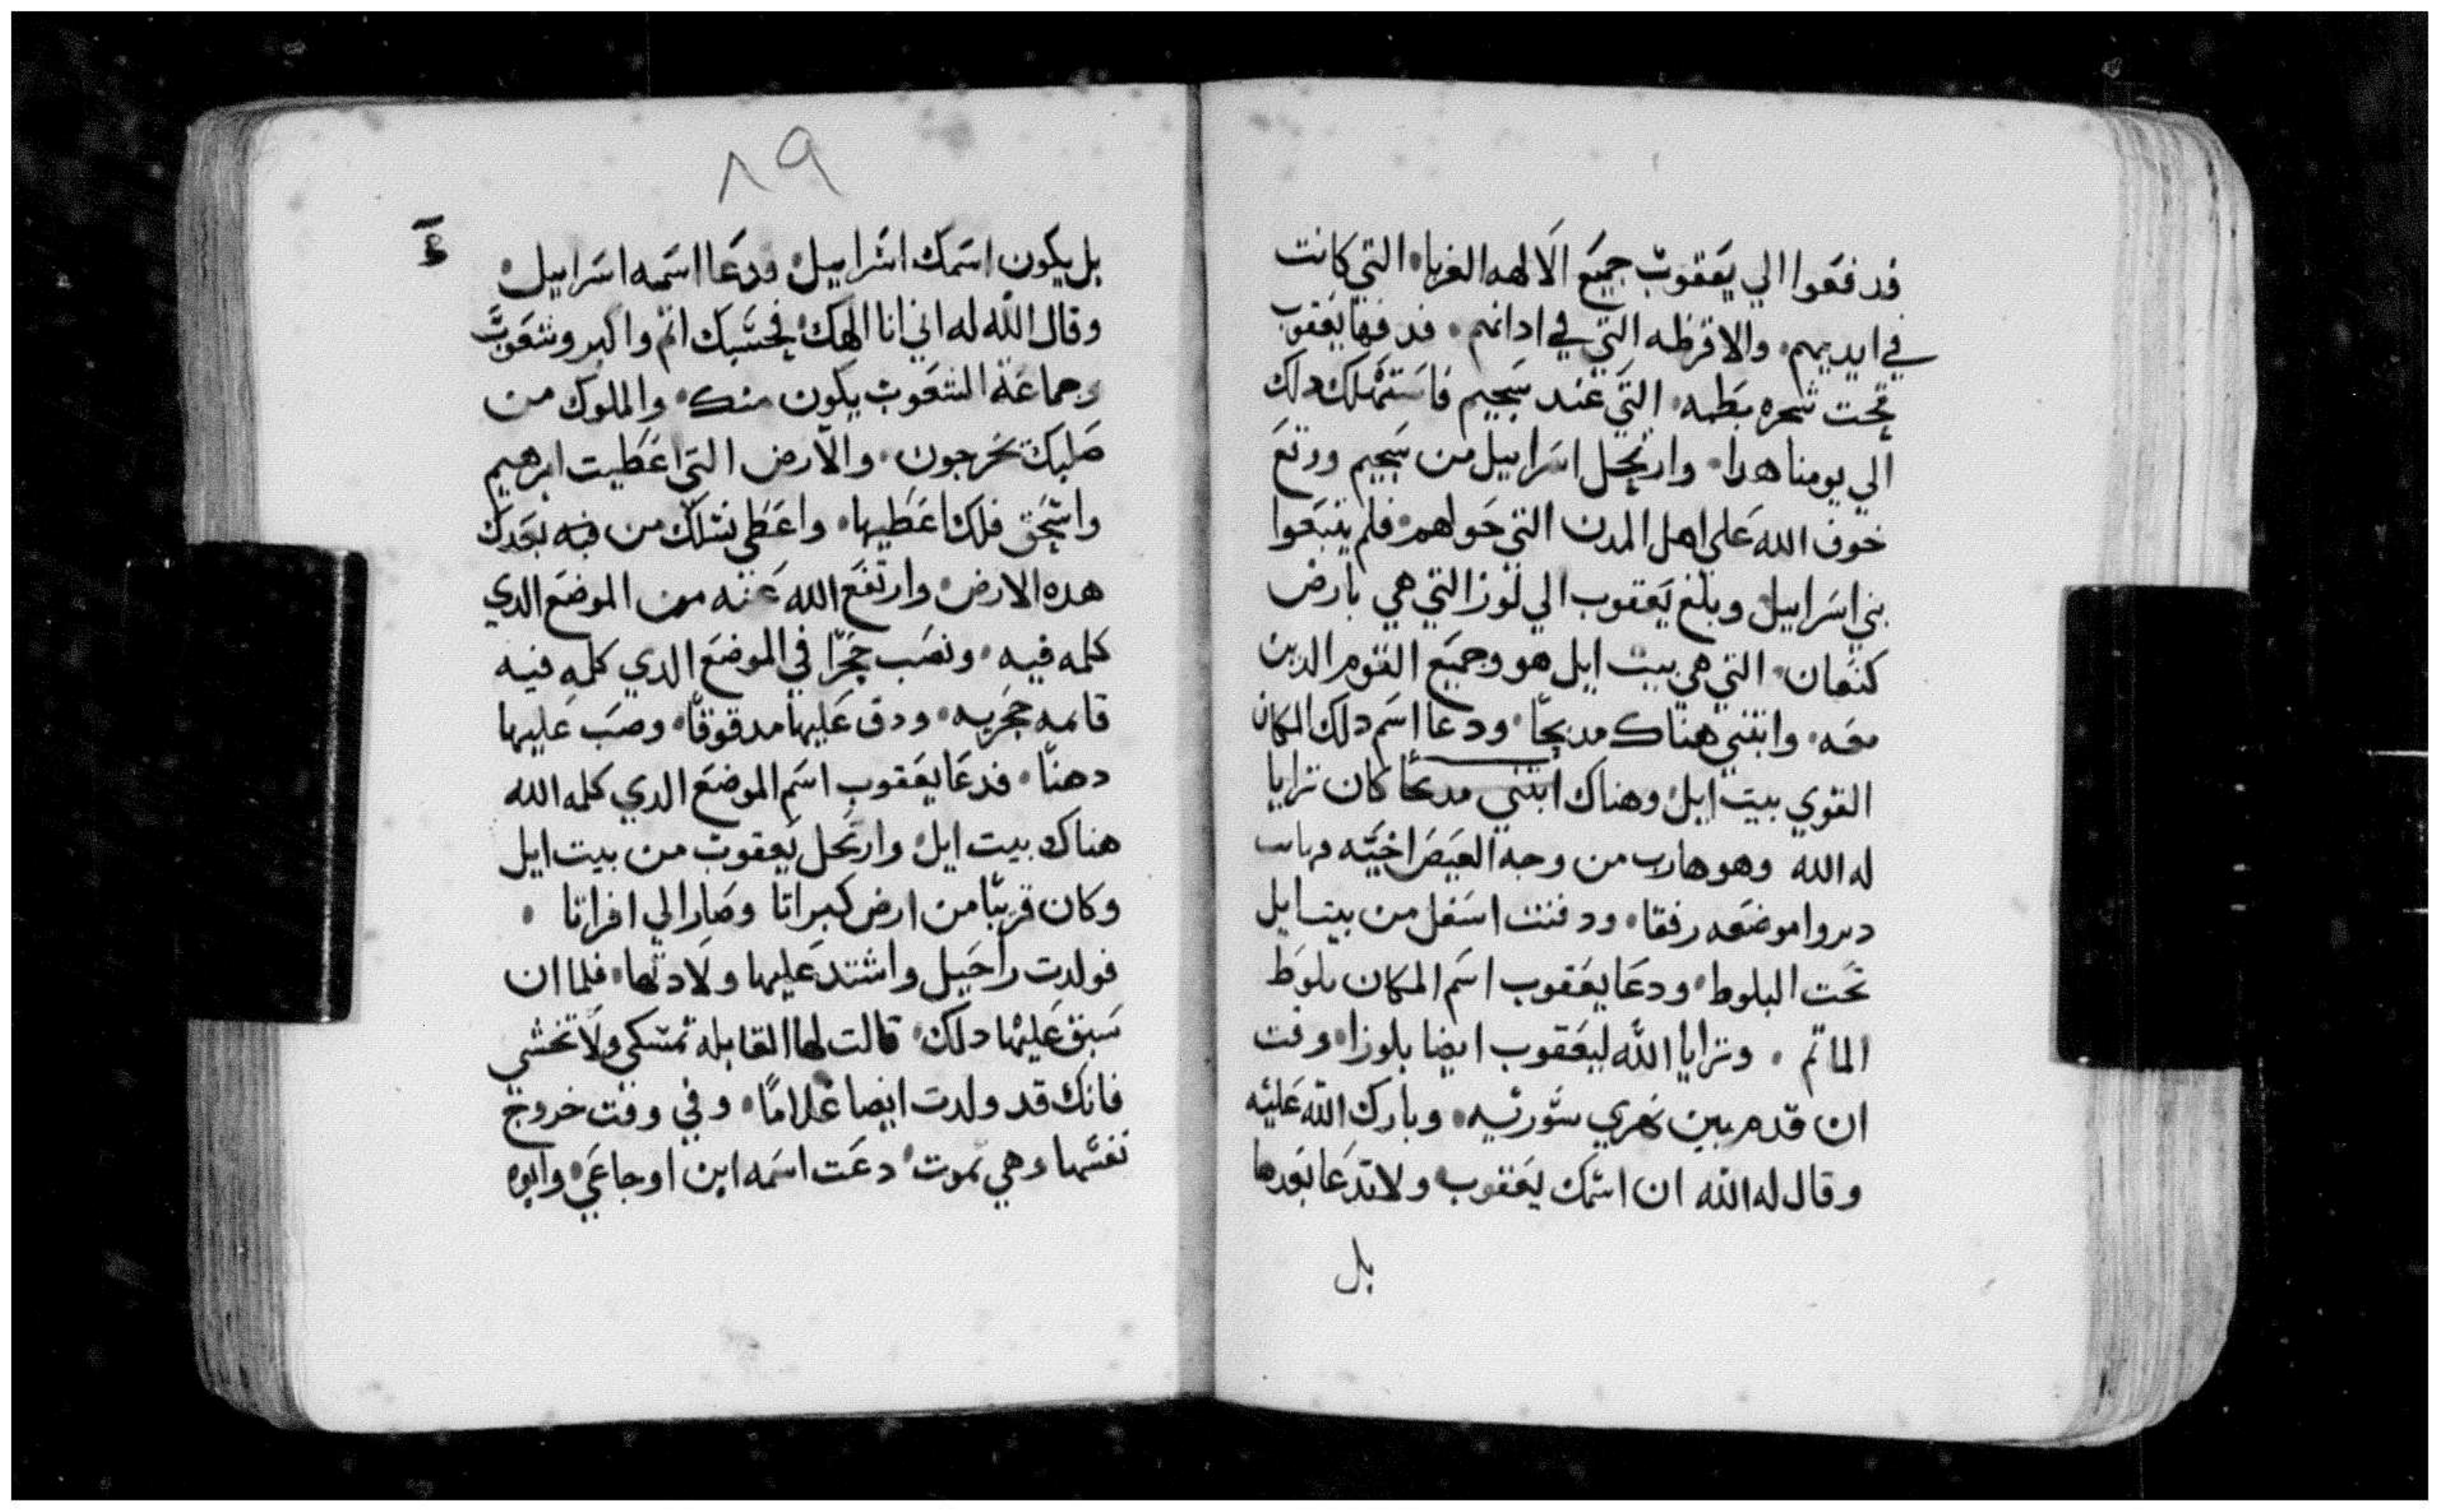 فدفعوا الي يعقوب جميع الالهه الغربا التي كانت
في ايديهم والاقرطه التي في ادانهم فدفنها يعقوب
تحت شجره بطمه التي عند سجيم فاستهلك دلك
الي يومنا هدا وارتحل اسراييل من سجيم ووقع
خوف الله علي اهل المدن التي حواهم فلم يتبعوا
بني اسراييل وبلغ يعقوب الي لوزا التي هي بارض
كنعان التي هي بيت ايل هو وجميع القوم الدين
معه وابتني هناك مدبحًا ودعا اسم دلك المكان
القوي بيت ايل وهناك ابتني مدبحًا كان ترايا
له الله وهو هارب من وجه العيص اخيه
موضعه رفقا ودفنت اسفل من بيت ايل
تحت البلوط ودعا يعقوب اسم المكان بلوط
الماتم وترايا الله ليعقوب ايضا بلوزا وقت
ان قدم بين نهري سوريه وبارك الله عليه
وقال له الله ان اسمك يعقوب ولا تدعا بعدها
بل
٨٩
بل يكون اسمك اسراييل فدعا اسمه اسراييل
وقال الله له اني انا الهك فحسبك انم واكبر وشعوب
وجماعة الشعوب يكون منك والملوك من
صلبك تخرجون والارض التي اعطيت ابرهيم
واسحق فلك اعطيها واعطي نسلك من بعدك
هده الارض وارتفع الله عنه من الموضع الدي
كلمه فيه ونصب حجرًا في الموضع الدي كلمه فيه
قامه حجريه ودق عليها مدقوقًا وصب عليها
دهنًا فدعا يعقوب اسم الموضع الدي كلمه الله
هناك بيت ايل وارتحل يعقوب من بيت ايل
وكان قريبًا من ارض كبراتا وصار الي افراتا
فولدت راحيل واشتد عليها ولادتها فلما ان
سبق عليها دلك قالت لها القابله تمسكي ولا تخشي
فانك قد ولدت ايضا غلامًا وفي وقت خروج
نفسها وهي تموت دعت اسمه ابن اوجاعي وابوه